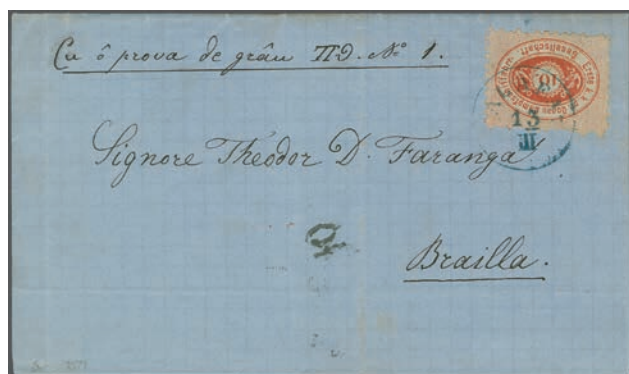 Cu ô prova de grâu ΠΘ. No. 1.
10
13
III
Signore Theodor D. Faranga
Brailla.